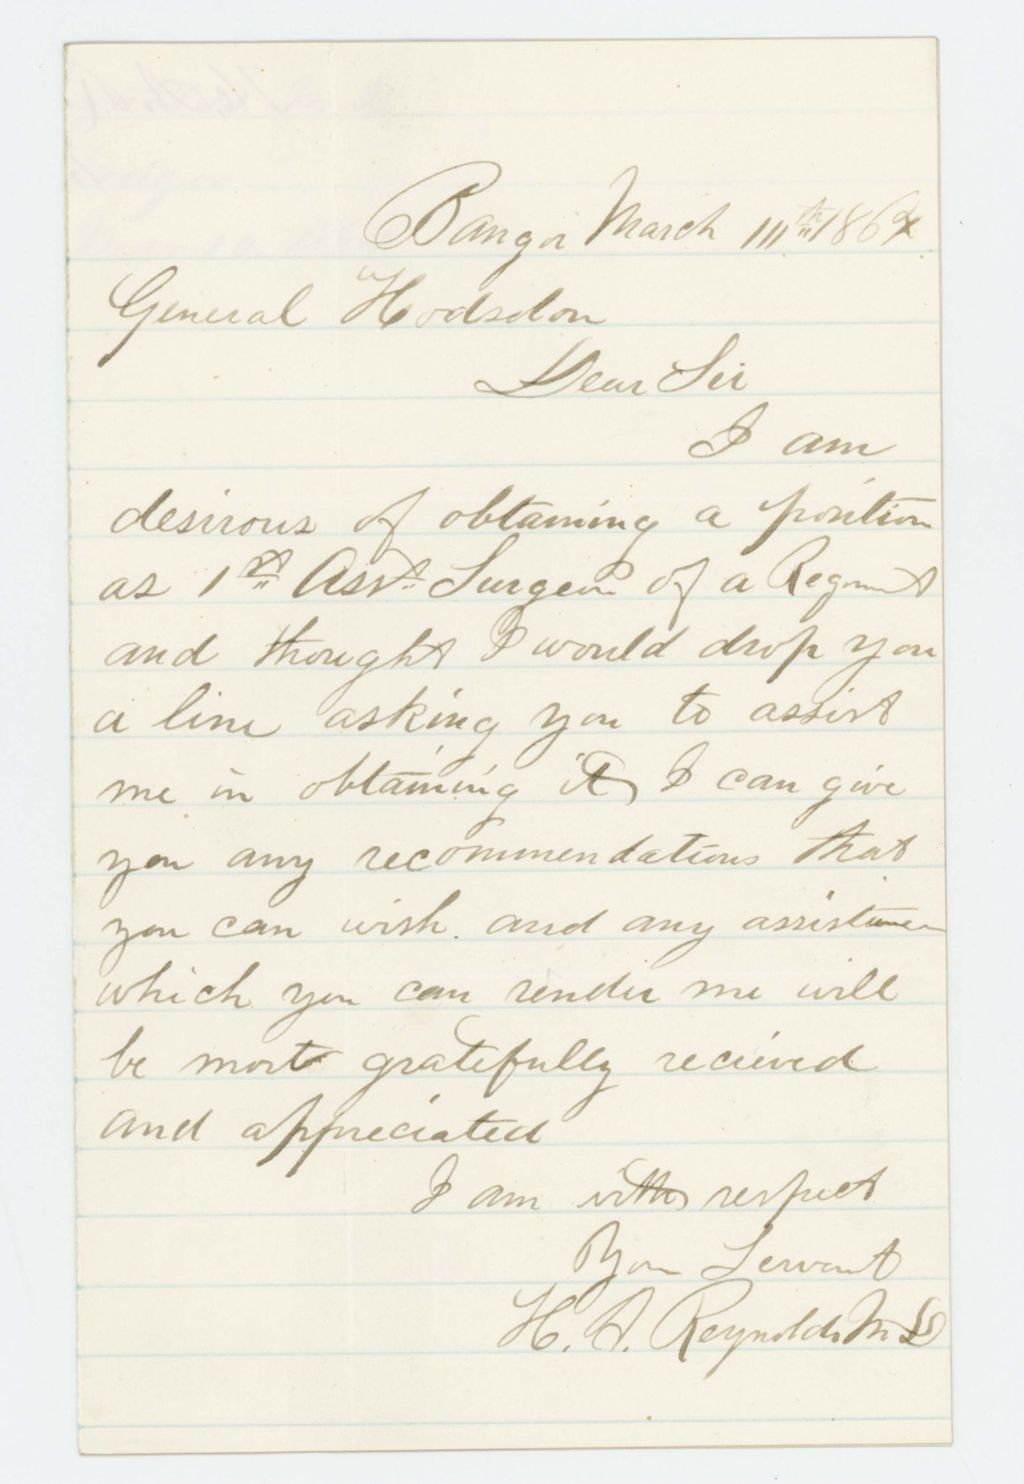 Bangor March 11th 1864
General Hodsdon
Dear Sir
I am
desirous of obtaining a position
as 1st Asst. Surgeon of a Regiment
and thought I would drop you
a line asking you to assist
me in obtaining it, I can give
you any recommendations that
you can wish. and any assistance
which you can render me will
be most gratefully recieved
and appreciated
I am with respect
Your Servant
H. A. Reynolds M D